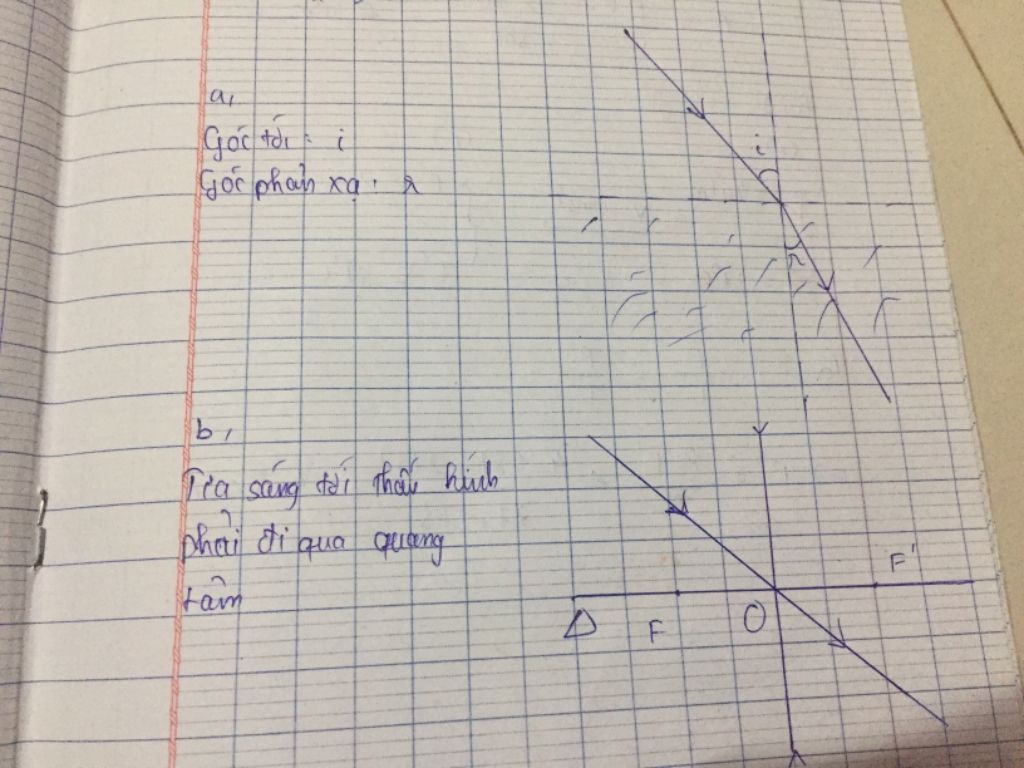 a,
Góc tới : i
Góc phản xạ : r
i
r
b,
Tia sáng tới thấu kính
phải đi qua quang
tâm
F'
Δ F O